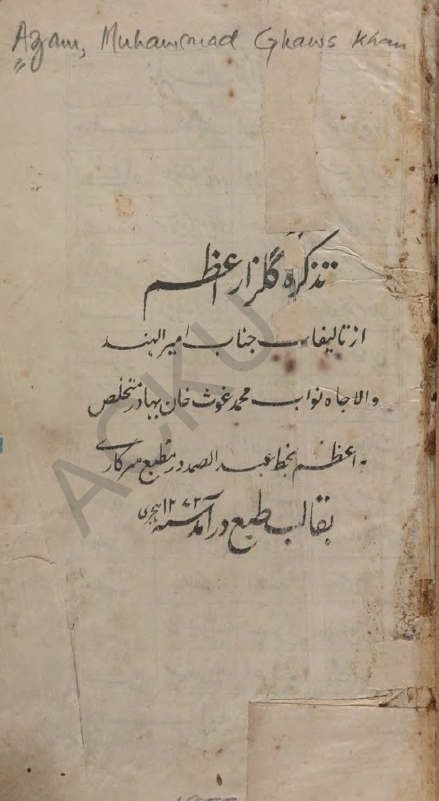 Azam, Muhammad Ghaws Khan
تذکرہ گلزار اعظم
از تالیفات جناب امیر الہند
والاجاہ نواب محمد غوث خان بہادر متخلص
بہ اعظم بخط عبد الصمد در مطبع سرکاری
بقالب طبع در آمد سنہ ۱۲۷۲ ہجری
ACKU